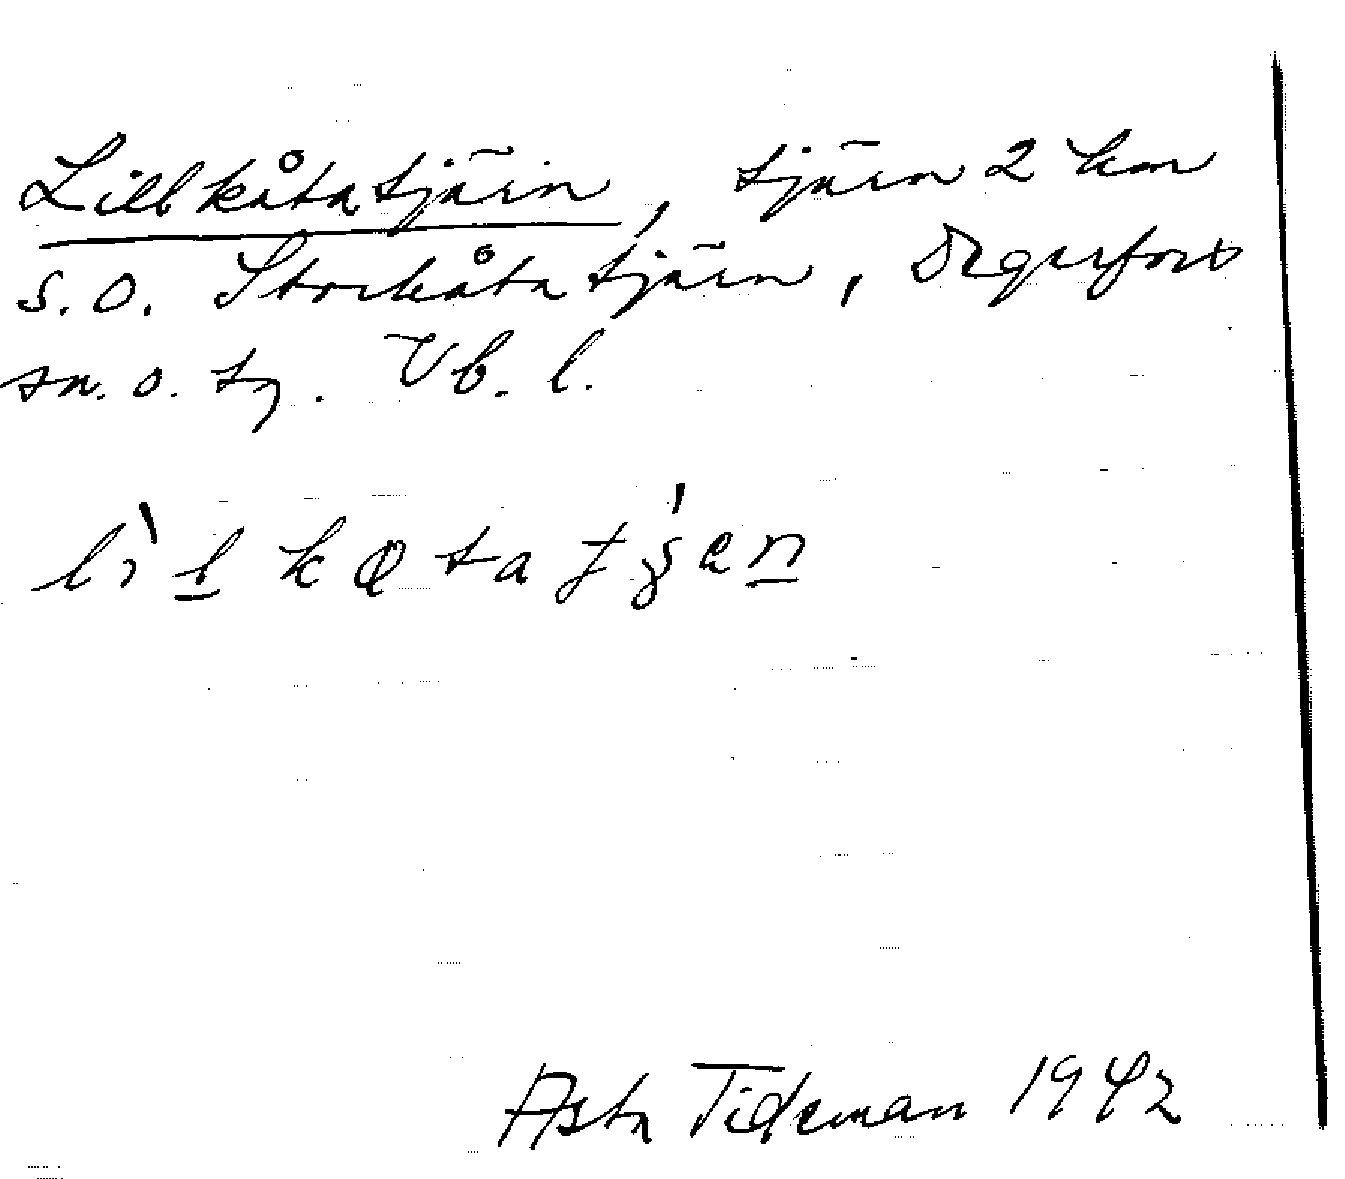 Lillkåtatjärn, tjärn 2 km
S.O. Storkåtatjärn, Degerfors
sn. o. tg. Vb. l.
Asta Tideman 1942